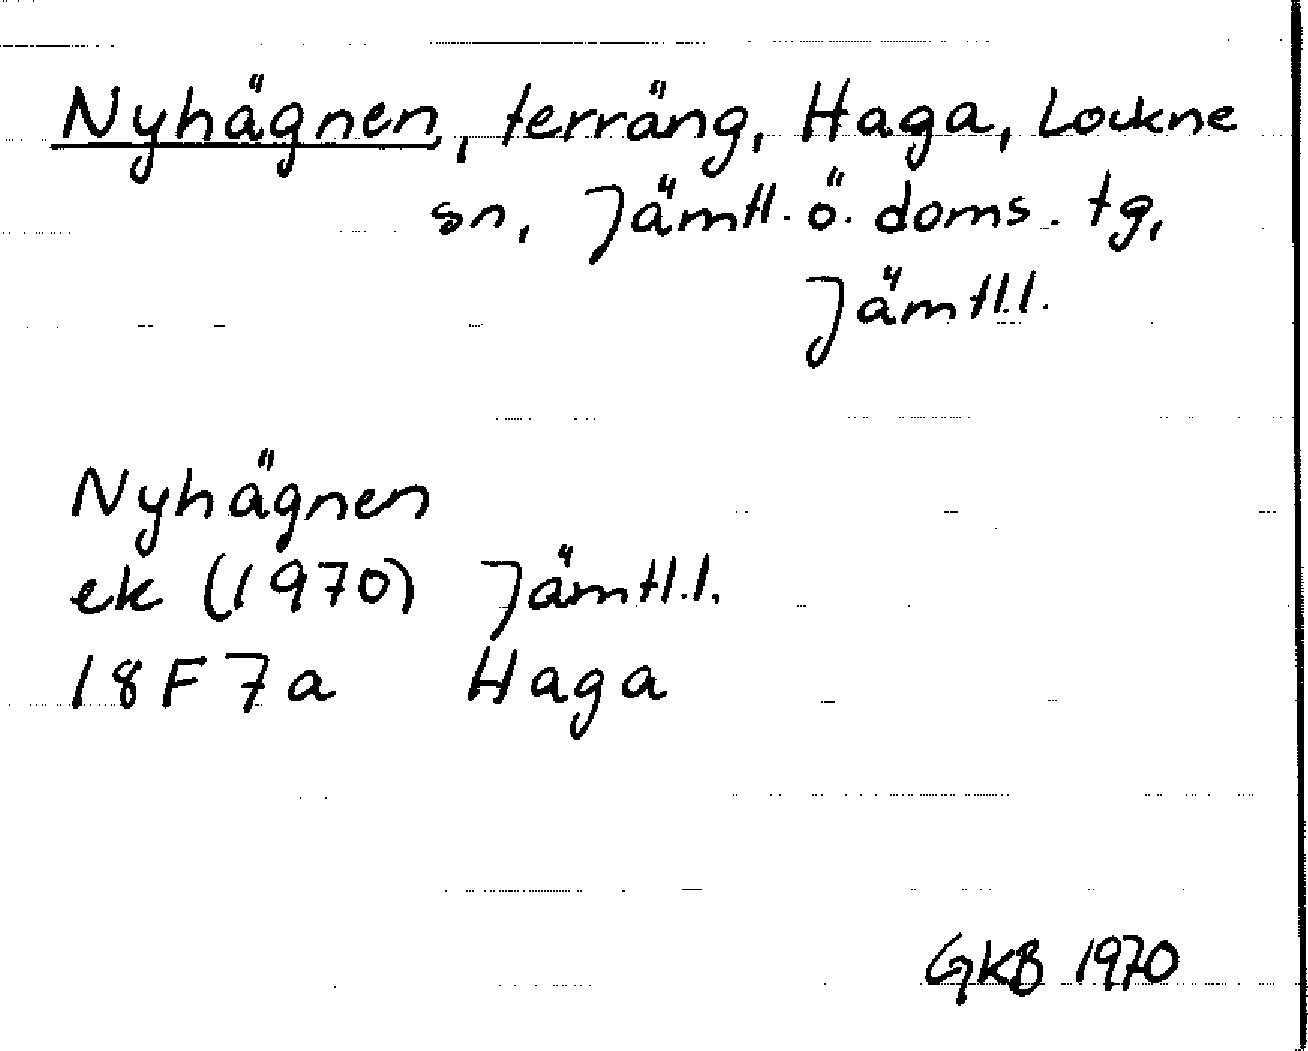 Nyhägnen, terräng, Haga, Lockne
sn, Jämtl. ö. doms. tg,
Jämtl.l.
Nyhägnen
ek (1970) Jämtl.l.
18F7a Haga
GKB 1970